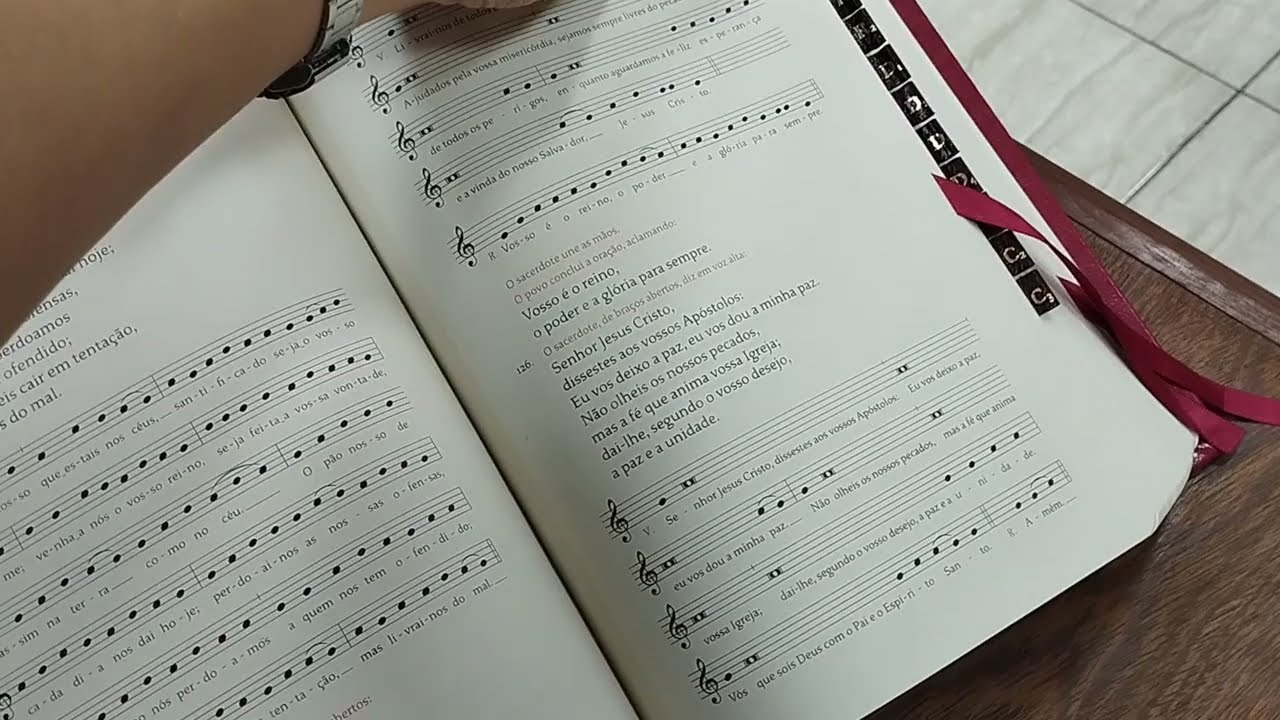 hoje;
ofensas,
perdoamos
ofendido;
eis cair em tentação,
s do mal.
sso que_es-tais nos céus,__ san-ti-fi-ca-do se-ja_o vos-so
me; ve-nha_a nós o vos-so rei-no, se-ja fei-ta_a vos-sa von-ta-de,
as-sim na ter-ra__ co-mo no céu.__ O pão nos-so de
ca-da di-a nos dai ho-je; per-do-ai-nos as nos-sas o-fen-sas,
nós per-do-a-mos a quem nos tem o-fen-di-do;
ten-ta-ção,__ mas li-vrai-nos do mal.__
bertos:
V. Li-vrai-nos de todos
A-judados pela vossa misericórdia, sejamos sempre livres do peca
de todos os pe-ri-gos, en-quanto aguardamos a fe-liz es-pe-ran-ça
e a vinda do nosso Salva-dor,__ Je-sus Cris-to.
R. Vos-so é o rei-no, o po-der__ e a gló-ria pa-ra sem-pre.
O sacerdote une as mãos.
O povo conclui a oração, aclamando:
Vosso é o reino,
o poder e a glória para sempre.
O sacerdote, de braços abertos, diz em voz alta:
126. Senhor Jesus Cristo,
dissestes aos vossos Apóstolos:
Eu vos deixo a paz, eu vos dou a minha paz.
Não olheis os nossos pecados,
mas a fé que anima vossa Igreja;
dai-lhe, segundo o vosso desejo,
a paz e a unidade.
V. Se-nhor Jesus Cristo, dissestes aos vossos Apóstolos: Eu vos deixo a paz,
eu vos dou a minha paz.__ Não olheis os nossos pecados, mas a fé que anima
vossa Igreja; dai-lhe, segundo o vosso desejo, a paz e a u-ni-da-de.
Vós que sois Deus com o Pai e o Espí-ri-to San-to. R. A-mém.__
C2
C3